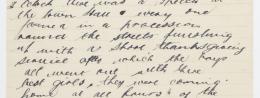 o'clock there was a speech in
the town Hall & every one
formed in a procession
round the streets finishing
up with a short thanksgiving
service after which the boys
all went out with their
best girls, they was coming
home at all hours of the